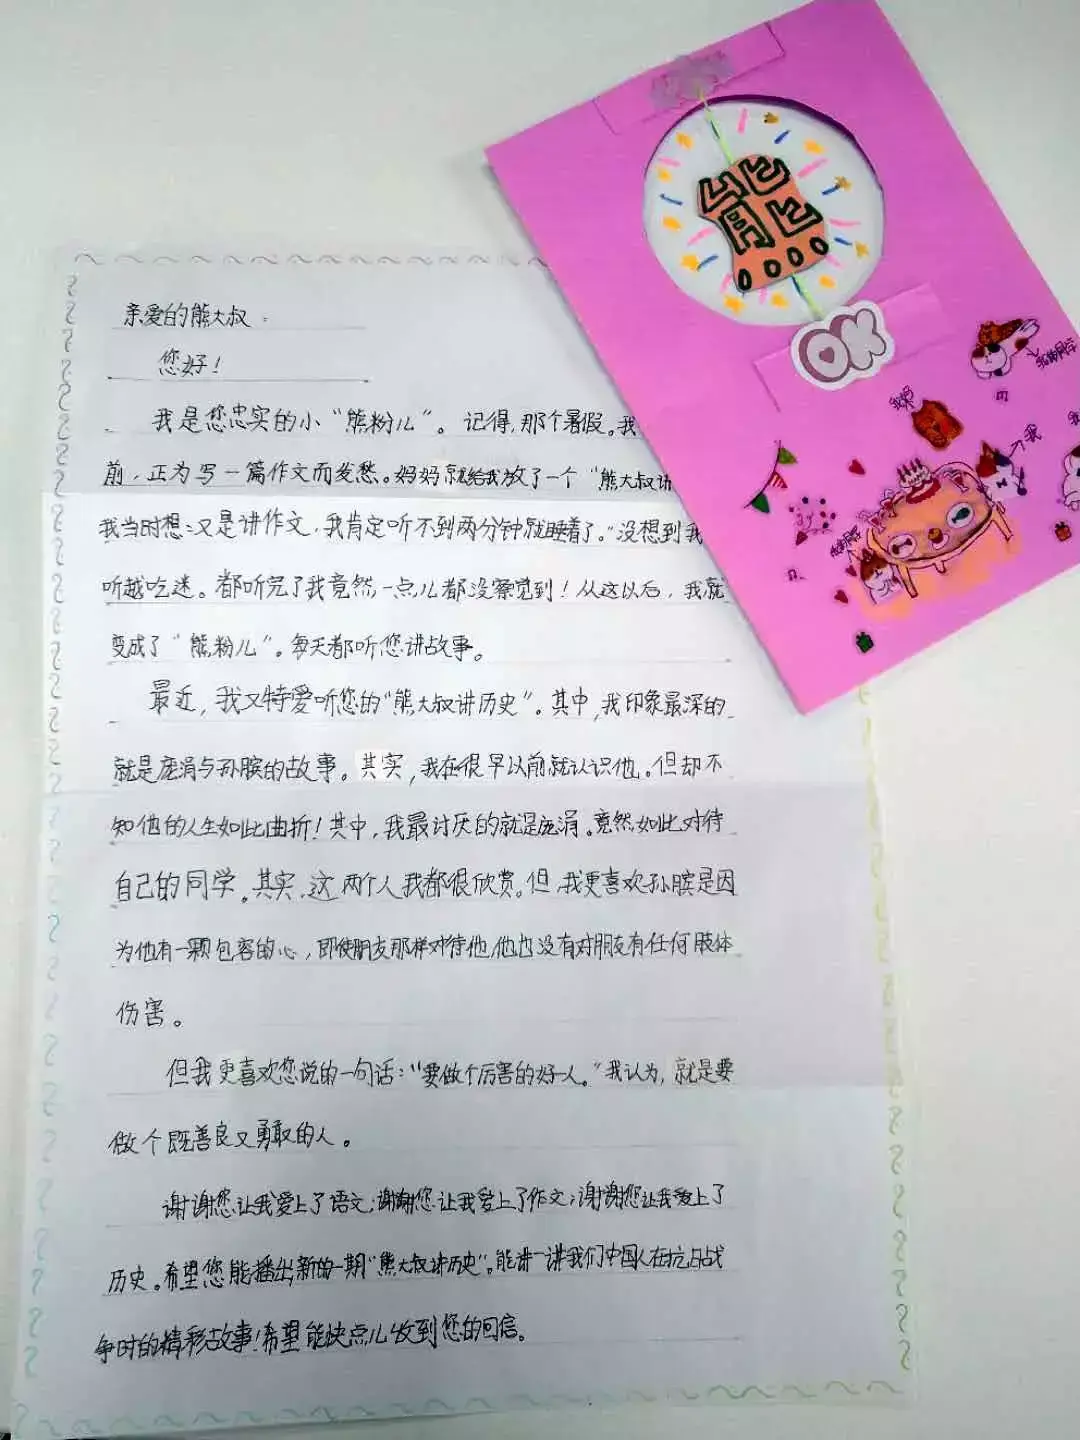 熊
OK
我的同学
我
我
我的同学
亲爱的熊大叔：
您好！
我是您忠实的小“熊粉儿”。记得，那个暑假。我
前，正为写一篇作文而发愁。妈妈就给我放了一个“熊大叔讲
我当时想：又是讲作文，我肯定听不到两分钟就睡着了。”没想到我
听越吃迷。都听完了我竟然一点儿都没察觉到！从这以后，我就
变成了“熊粉儿”。每天都听您讲故事。
最近，我又特爱听您的“熊大叔讲历史”。其中，我印象最深的
就是庞涓与孙膑的故事。其实，我在很早以前就认识他。但却不
知他的人生如此曲折！其中，我最讨厌的就是庞涓。竟然如此对待
自己的同学。其实，这两个人我都很欣赏。但，我更喜欢孙膑是因
为他有一颗包容的心，即使朋友那样对待他，他也没有对朋友有任何肢体
伤害。
但我更喜欢您说的一句话：“要做个厉害的好人。”我认为，就是要
做个既善良又勇敢的人。
谢谢您让我爱上了语文；谢谢您让我爱上了作文；谢谢您让我爱上了
历史。希望您能播出新的一期“熊大叔讲历史”。能讲一讲我们中国人在抗日战
争时的精彩故事！希望能快点儿收到您的回信。